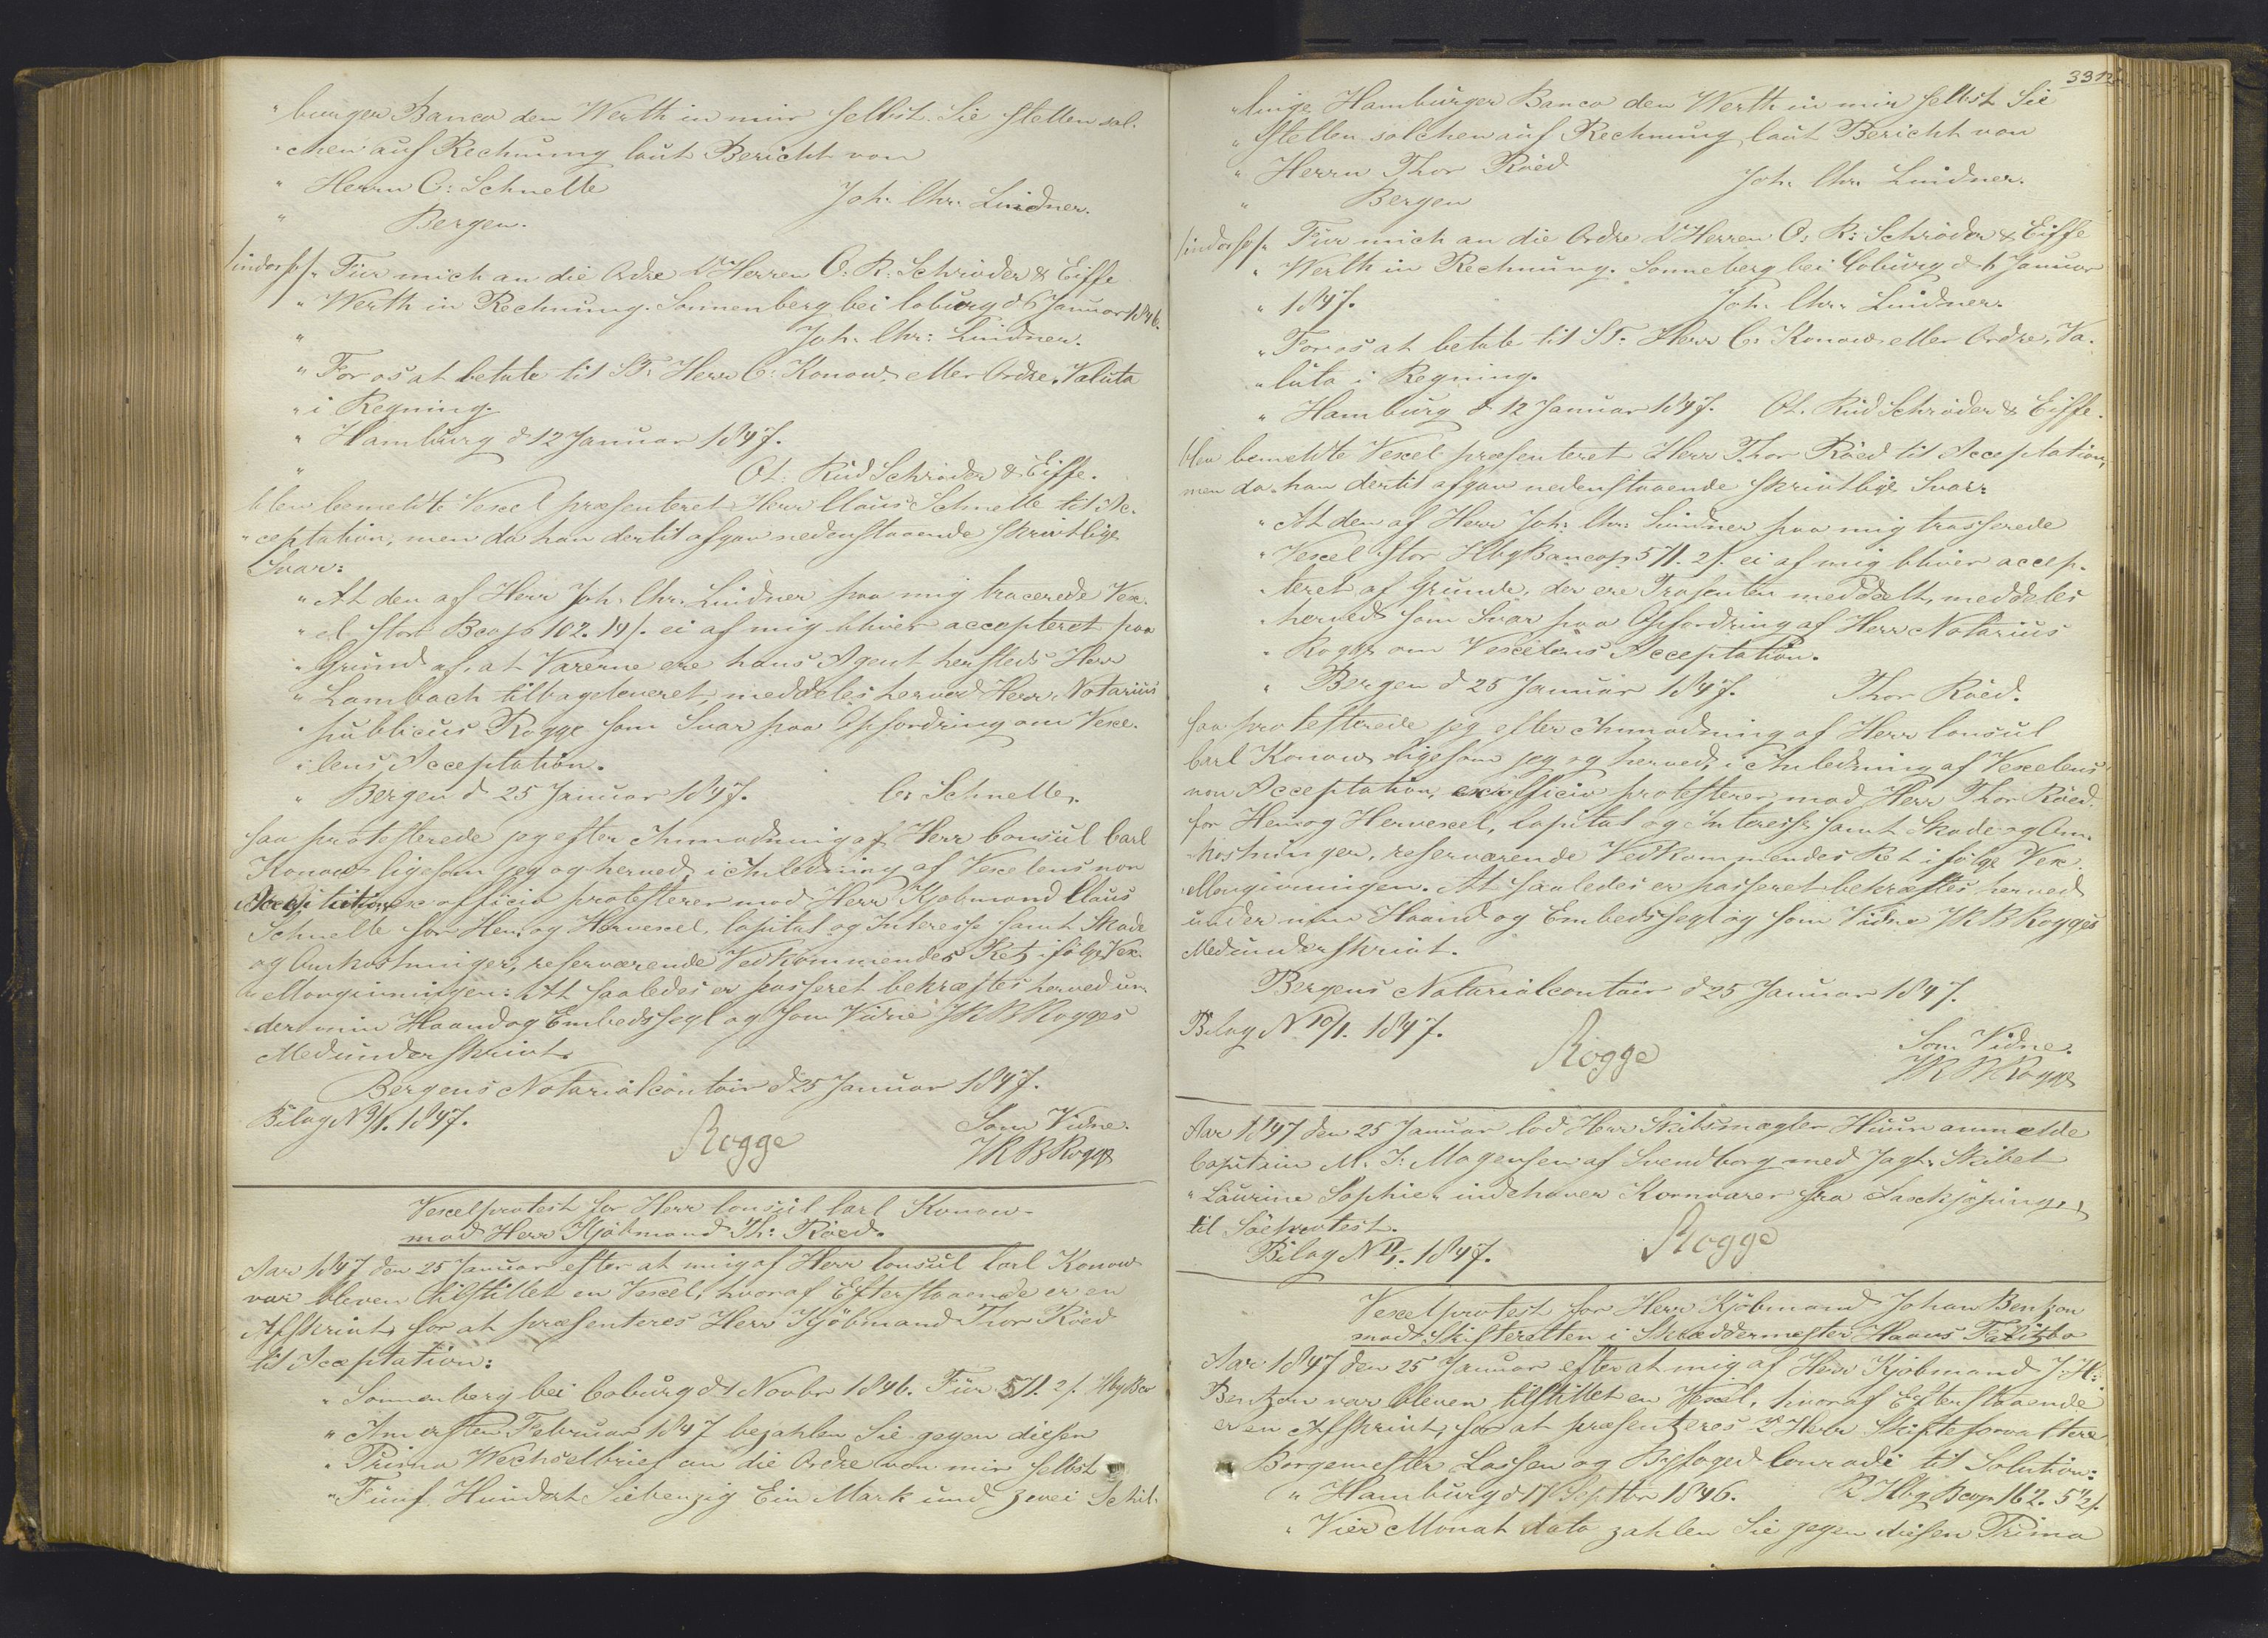 " burger Banco den Werth in mir selbst. Sie stellen sol-
" chen auf Rechnung laut Bericht von
" Herrn C: Schnelle
Joh: Chr: Lindner.
" Bergen.
/indorf/ " Für mich an die Ordre d Herren O. R. Schröder & Eiffe
" Werth in Rechnung. Sonnenberg bei Coburg d 6 Januar 1846.
" Joh. Chr: Lindner.
" For os at betale til ST. Herr C: Konow eller Ordre, Valuta
" i Regning.
" Hamburg d 12 Januar 1847.
" Ol: Rud Schröder & Eiffe.
blev bemeldte Vexel præsenteret Herr Claus Schnelle til Ac-
ceptation, men da han dertil afgav nedenstaaende skrivtlige
Svar:
" At den af Herr Joh. Chr. Lindner paa mig tracerede Vex-
" el stor Bco 102. 14 ei af mig bliver accepteret paa
" Grund af, at Varerne ere hans Agent hersteds Herr
" Lambach tilbageleveret, meddeles herved Herr Notarius
" publicus Rogge som Svar paa Opfordring om Vexe-
" lens Acceptation.
" Bergen d 25 Januar 1847. C: Schnelle.
saa protesterede jeg efter Anmodning af Herr Consul Carl
Konow ligesom jeg og herved, i Anledning af Vexelens non
Acceptation ex officio protesterer mod Herr Kjøbmand Claus
Schnelle for Hen og Hervexel, Capital og Interesse samt Skade
og Omkostninger, reserverende Vedkommendes Ret ifølge Vex-
ellovgivningen: At saaledes er passeret bekræftes herved un-
der min Haand og Embedssegl og som Vidne J R B Rogges
Medunderskrivt.
Bergens Notarialcontoir d 25 Januar 1847.
Bilag N 9/1. 1847.
Rogge
Som Vidne.
J R B Rogge
Vexelprotest for Herr Consul Carl Konow
mod Herr Kjøbmand Th: Röed.
Aar 1847 den 25 Januar efter at mig af Herr Consul Carl Konow
var bleven tilstillet en Vexel, hvoraf Efterstaaende er en
Afskrivt, for at præsenteres Herr Kjöbmand Thor Röed
til Acceptation:
" Sonnenberg bei Coburg d 1 Novbr 1846. Für 571. 2 /. Hbg Bco
" Am ersten Februar 1847 bezahlen Sie gegen diesen
" Prima Wechselbrief an die Ordre von mir selbst
" Fünf Hundert Siebenzig Ein Mark und zwei Schil-
331
" linge Hamburger Banco den Werth in mir selbst Sie
" stellen solchen auf Rechnung laut Bericht von
" Herrn Thor Röed
Joh. Chr. Lindner.
" Bergen
/indorf/ " Für mich an die Ordre d Herren O. R: Schröder & Eiffe
" Werth in Rechnung. Sonneberg bei Coburg d 6 Januar
" 1847. Joh. Chr. Lindner.
" For os at betale til ST. Herr C: Konow eller Ordre, Va-
" luta i Regning.
" Hamburg d 12 Januar 1847. Ol. Rud Schröder & Eiffe.
blev bemeldte Vexel præsenteret Herr Thor Röed til Acceptation,
men da han dertil afgav nedenstaaende skrivtlige Svar:
" At den af Herr Joh: Chr: Lindner paa mig trasserede
" Vexel stor Hbg Banco 571. 2 /. ei af mig bliver accep-
" teret af Grunde, der ere Trasenten meddelt, meddeles
" herved som Svar paa Opfordring af Herr Notarius
" Rogge om Vexelens Acceptation.
" Bergen d 25 Januar 1847. Thor Röed.
saa protesterede jeg efter Anmodning af Herr Consul
Carl Konow ligesom jeg og herved, i Anledning af Vexelens
non Acceptation, ex officio protesterer mod Herr Thor Röed
for Hen og Hervexel, Capital og Interesse samt Skade og Om-
kostninger, reserverende Vedkommendes Ret ifølge Vex-
ellovgivningen. At saaledes er passeret bekræftes herved
under min Haand og Embedssegl og som Vidne J R B Rogges
Medunderskrivt.
Bergens Notarialcontoir d 25 Januar 1847.
Bilag N 10/1. 1847.
Rogge
Som Vidne.
J R B Rogge
Aar 1847 den 25 Januar lod Herr Skibsmægler Huun anmelde
Capitain M. J. Mogensen af Svendborg med Jagt-Skibet
" Laurine Sophie " indehaver Kornvarer fra Saxkjøping,
til Söeprotest.
Bilag N 11/1. 1847.
Rogge
Vexelprotest for Herr Kjöbmand Johan Bentzon
modt Skifteretten i Skræddermester Haavs Falitbo
Aar 1847 den 25 Januar efter at mig af Herr Kjöbmand J. H:
Bentzon var bleven tilstillet en Vexel, hvoraf Efterstaaende
er en Afskrivt, for at præsenteres d Herr Skifteforvaltere
Borgemester Lassen og Byfoged Conradi til Solution:
" Hamburg d 17 Septbr 1846. Hbg Bco 162. 5 1/2 /.
" Vier Monat dato zahlen Sie gegen diesen Prima